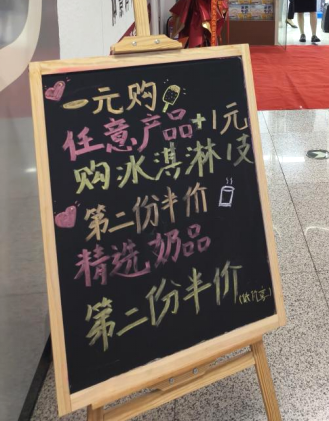 一元购
任意产品+1元
购冰淇淋1支
第二份半价
精选奶品
第二份半价